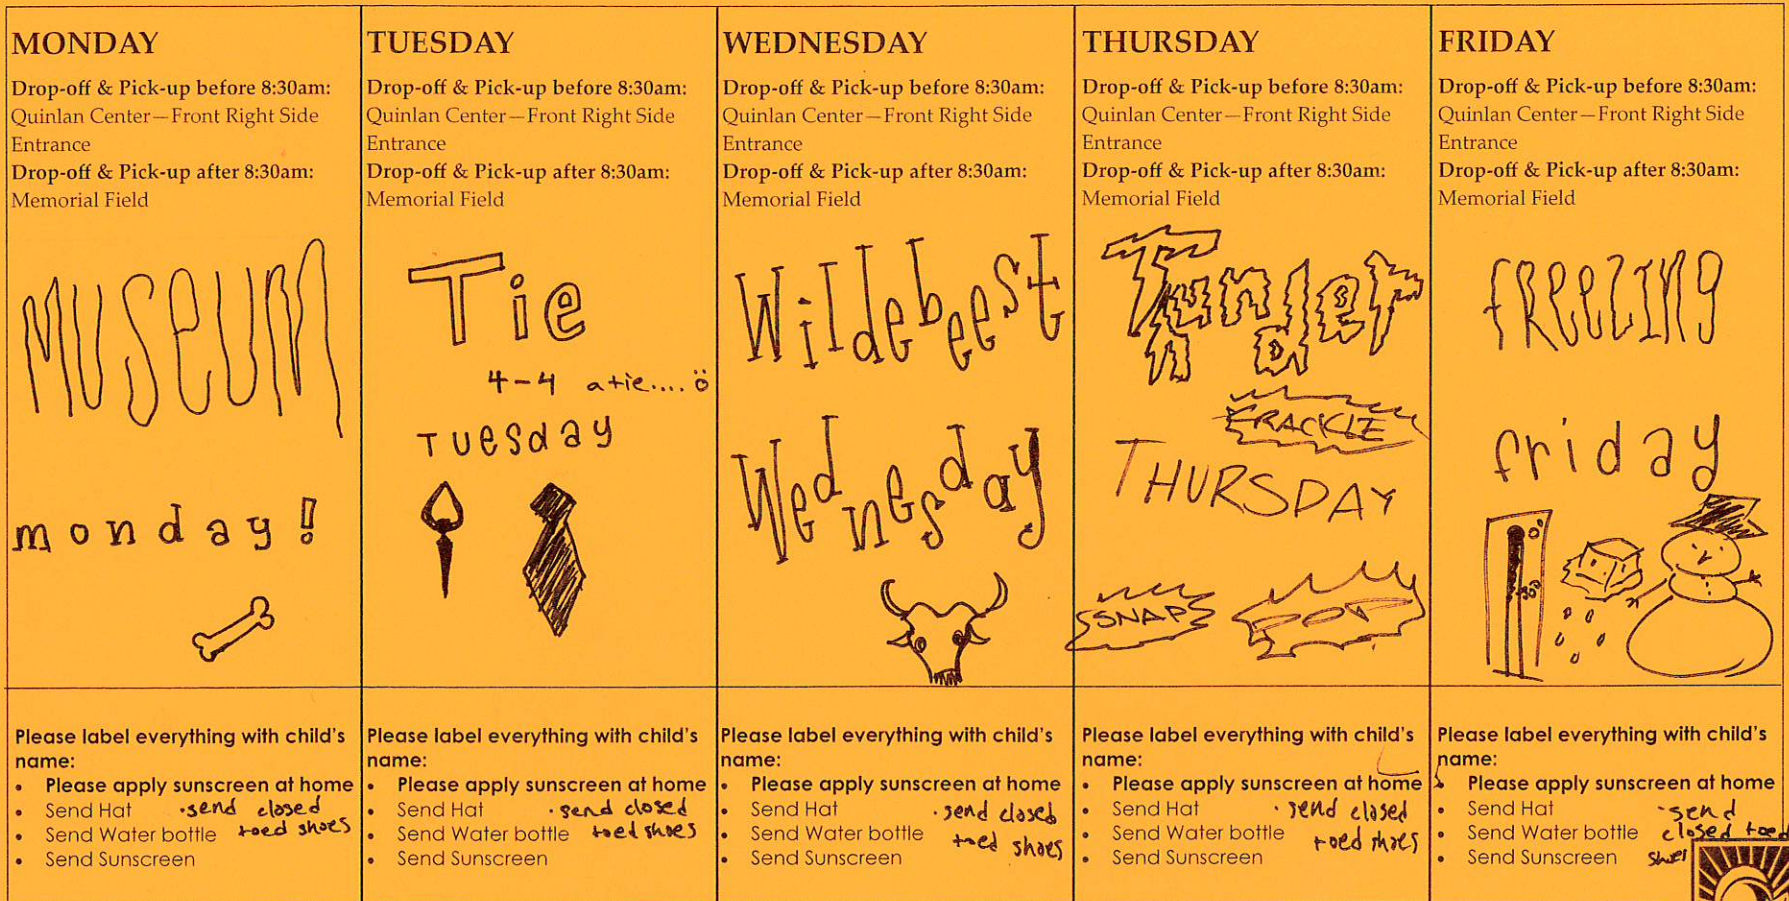 MONDAY
Drop-off & Pick-up before 8:30am:
Quinlan Center—Front Right Side
Entrance
Drop-off & Pick-up after 8:30am:
Memorial Field
MUSEUM
monday!
Please label everything with child's
name:
• Please apply sunscreen at home
• Send Hat
• Send Water bottle
• Send Sunscreen
·send closed
toed shoes
TUESDAY
Drop-off & Pick-up before 8:30am:
Quinlan Center—Front Right Side
Entrance
Drop-off & Pick-up after 8:30am:
Memorial Field
Tie
4-4 a tie....
Tuesday
Please label everything with child's
name:
• Please apply sunscreen at home
• Send Hat
• Send Water bottle
• Send Sunscreen
·send closed
toed shoes
WEDNESDAY
Drop-off & Pick-up before 8:30am:
Quinlan Center—Front Right Side
Entrance
Drop-off & Pick-up after 8:30am:
Memorial Field
Wildebeest
Wednesday
Please label everything with child's
name:
• Please apply sunscreen at home
• Send Hat
• Send Water bottle
• Send Sunscreen
·send closed
toed shoes
THURSDAY
Drop-off & Pick-up before 8:30am:
Quinlan Center—Front Right Side
Entrance
Drop-off & Pick-up after 8:30am:
Memorial Field
Thunder
CRACKLE
THURSDAY
SNAP
POP
Please label everything with child's
name:
• Please apply sunscreen at home
• Send Hat
• Send Water bottle
• Send Sunscreen
·send closed
toed shoes
FRIDAY
Drop-off & Pick-up before 8:30am:
Quinlan Center—Front Right Side
Entrance
Drop-off & Pick-up after 8:30am:
Memorial Field
fReeZING
friday
0°
-30°
Please label everything with child's
name:
• Please apply sunscreen at home
• Send Hat
• Send Water bottle
• Send Sunscreen
·send
closed toed
shoes